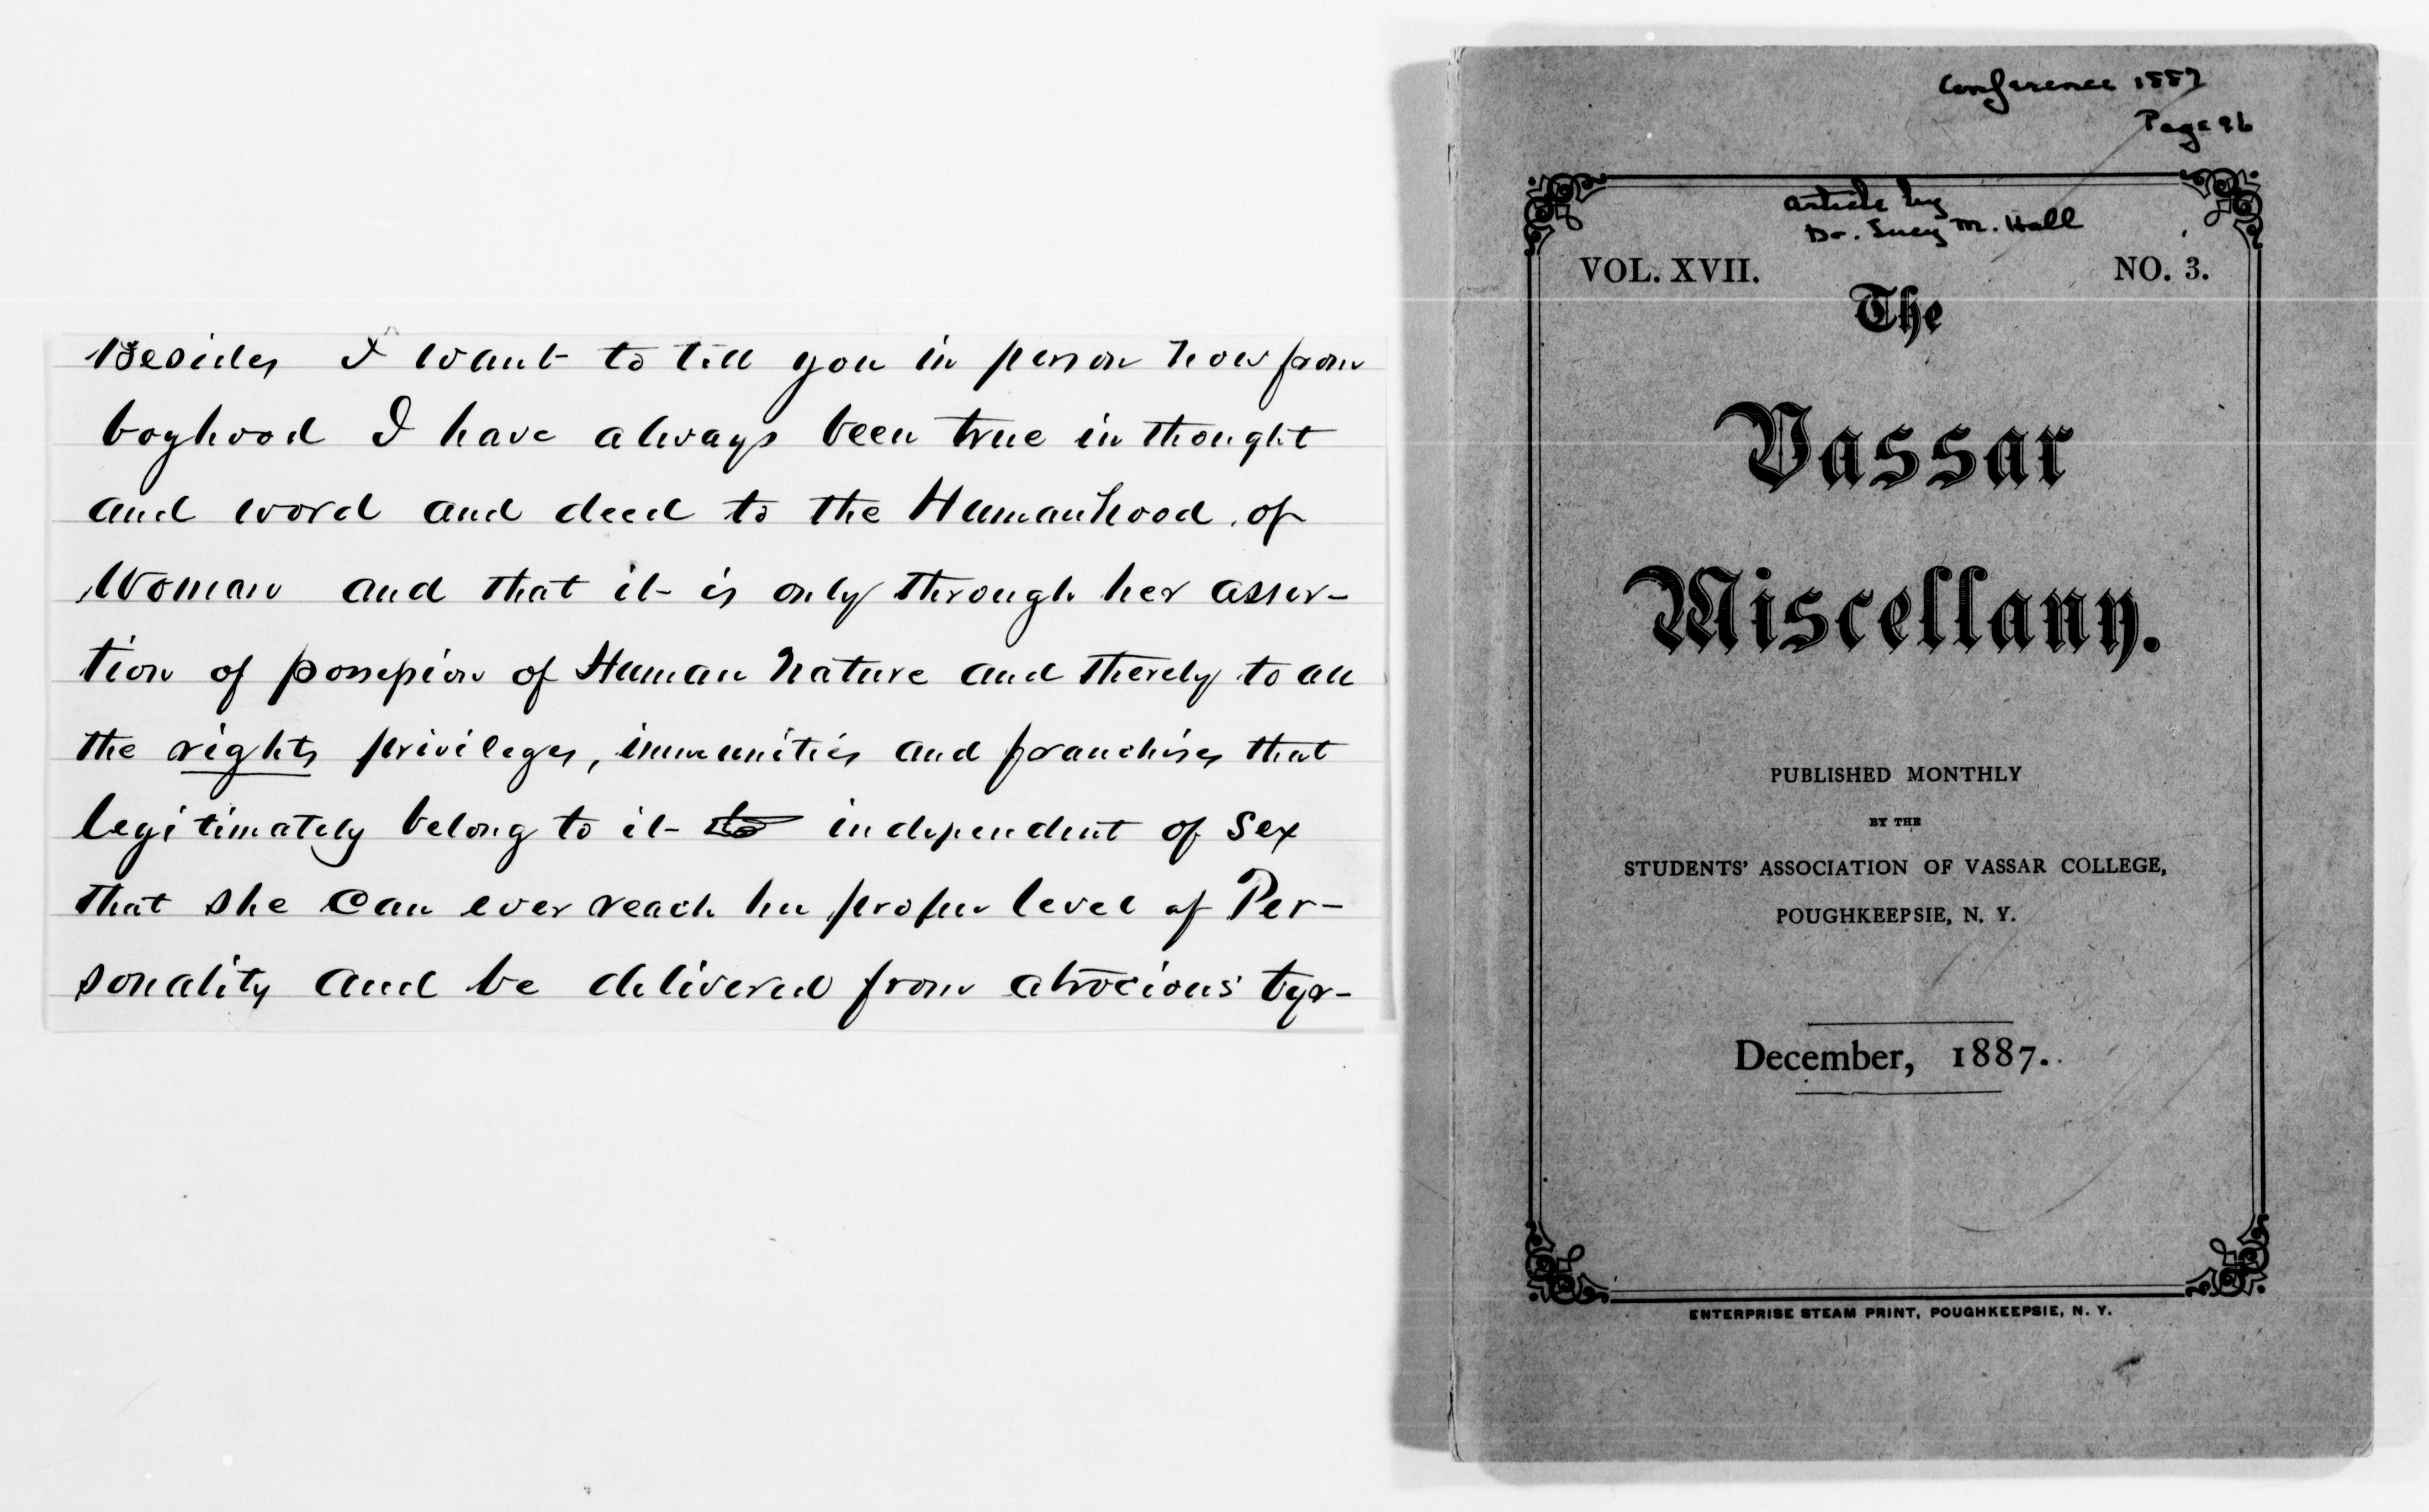 Besides I want to tell you in person how from
boyhood I have always been true in thought
and word and deed to the Humanhood of
Woman and that it is only through her asser-
tion of possession of Human Nature and thereby to all
the rights privileges, immunities and franchises that
legitimately belong to it to independent of sex
that she can ever reach her proper level of Per-
sonality and be delivered from atrocious tyr-
Conference 1887
Page 96
Article by
Dr. Lucy M. Hall
VOL. XVII. NO. 3.
The
Vassar
Miscellany.
PUBLISHED MONTHLY
BY THE
STUDENTS' ASSOCIATION OF VASSAR COLLEGE,
POUGHKEEPSIE, N. Y.
December, 1887.
ENTERPRISE STEAM PRINT, POUGHKEEPSIE, N. Y.